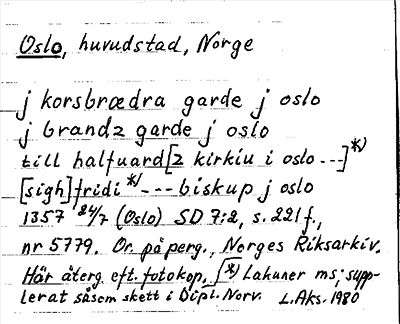 Oslo, huvudstad, Norge
j korsbrædra garde j oslo
j brandz garde j oslo
till halfuard[z kirkiu i oslo ---]*)
[sigh]fridi*) --- biskup j oslo
1357 24/7 (Oslo) SD 7:2, s. 221 f.,
nr 5779. Or. på perg., Norges Riksarkiv.
Här återg. eft. fotokop. *) Lakuner ms; supp-
lerat såsom skett i Dipl. Norv. L. Aks. 1980